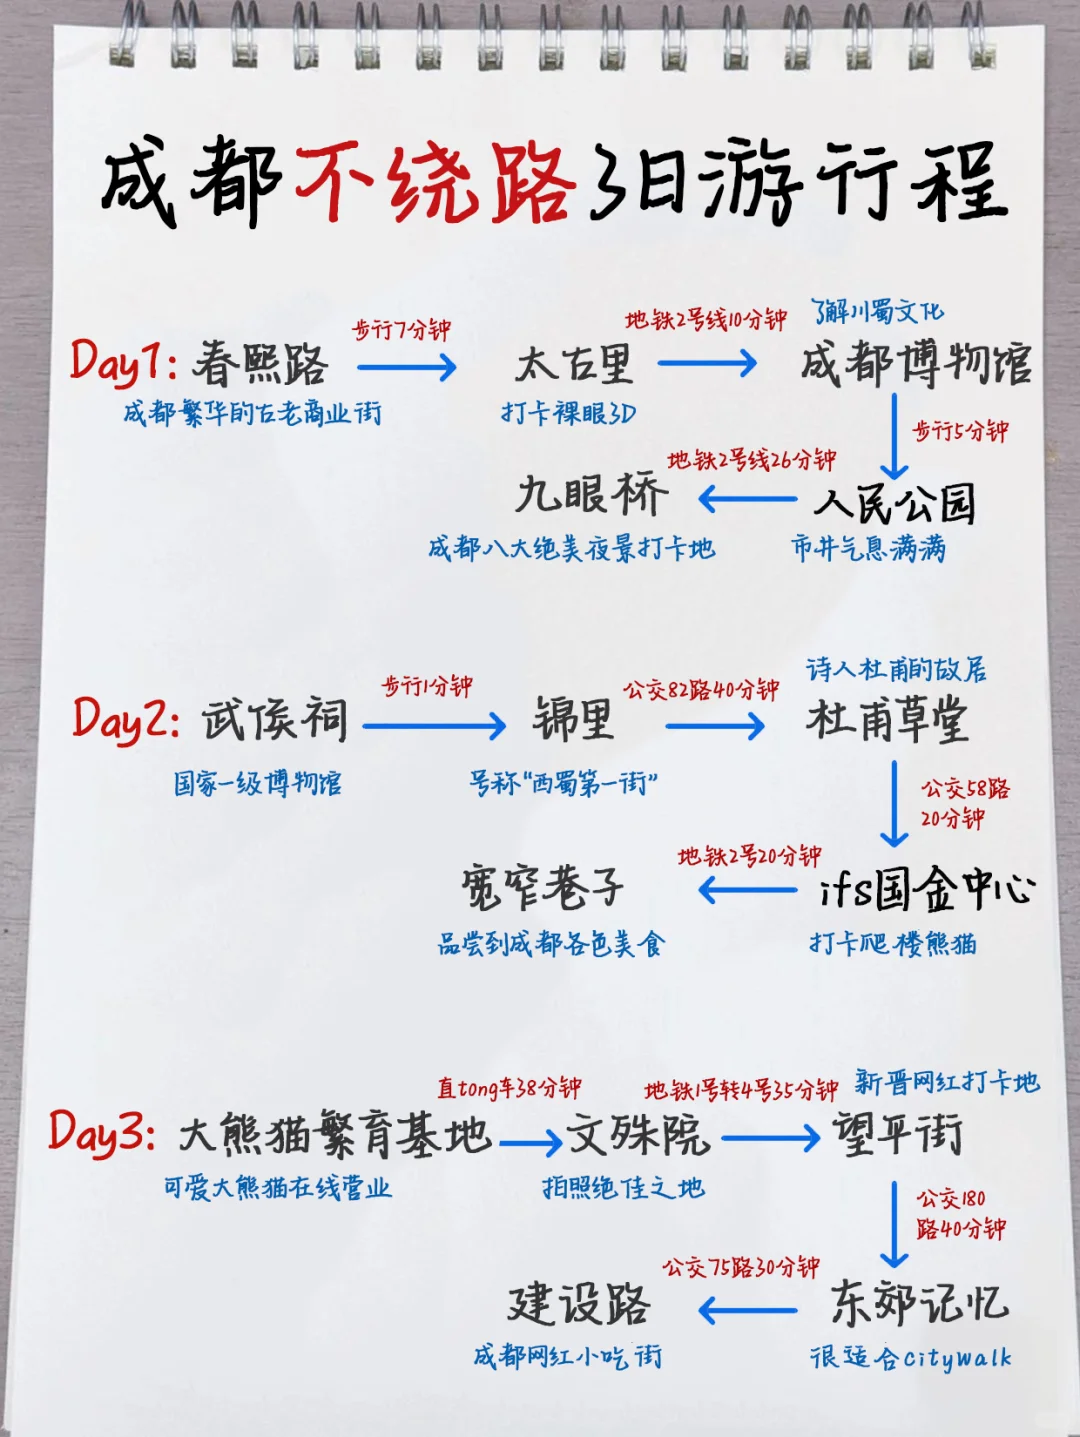 成都不绕路3日游行程
Day1: 春熙路
成都繁华的古老商业街
步行7分钟
太古里
打卡裸眼3D
地铁2号线10分钟
了解川蜀文化
成都博物馆
步行5分钟
人民公园
市井气息满满
地铁2号线26分钟
九眼桥
成都八大绝美夜景打卡地
Day2: 武侯祠
国家一级博物馆
步行1分钟
锦里
号称“西蜀第一街”
公交82路40分钟
诗人杜甫的故居
杜甫草堂
公交58路
20分钟
ifs国金中心
打卡爬楼熊猫
地铁2号20分钟
宽窄巷子
品尝到成都各色美食
Day3: 大熊猫繁育基地
可爱大熊猫在线营业
直tong车38分钟
文殊院
拍照绝佳之地
地铁1号转4号35分钟
新晋网红打卡地
望平街
公交180
路40分钟
东郊记忆
很适合citywalk
公交75路30分钟
建设路
成都网红小吃街